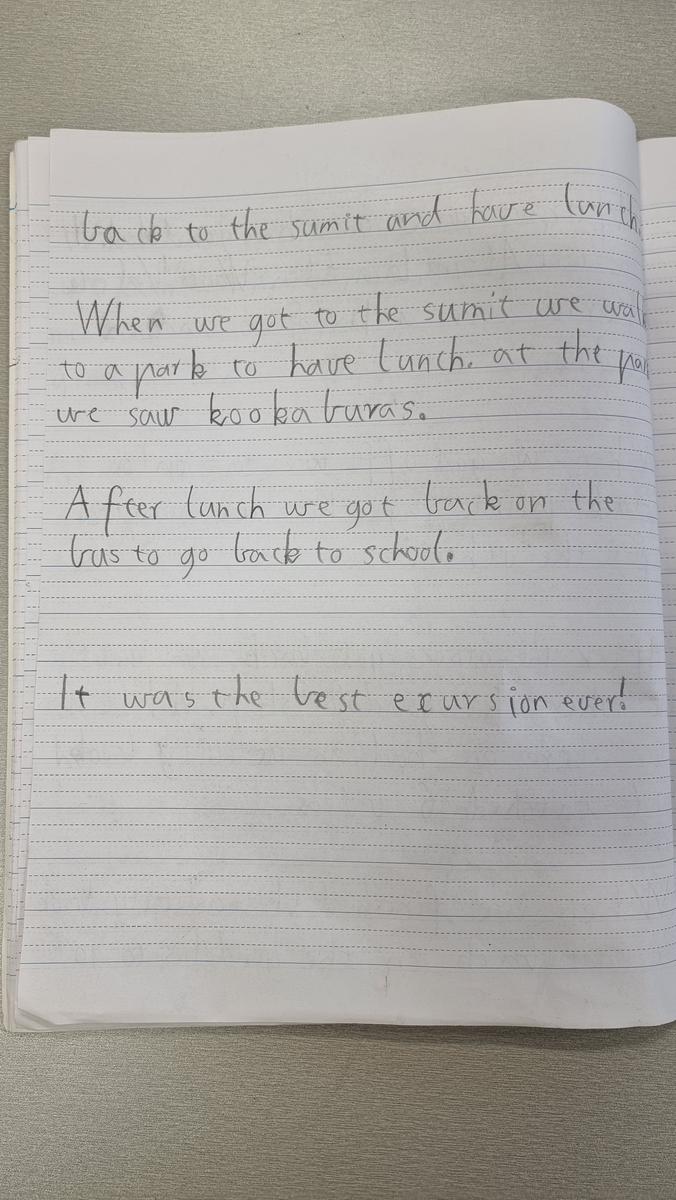 back to the sumit and have lunch
When we got to the sumit we
to a park to have lunch. at the
we saw kookaburas.
After lunch we got back on the
bus to go back to school.
It was the best excursion ever!